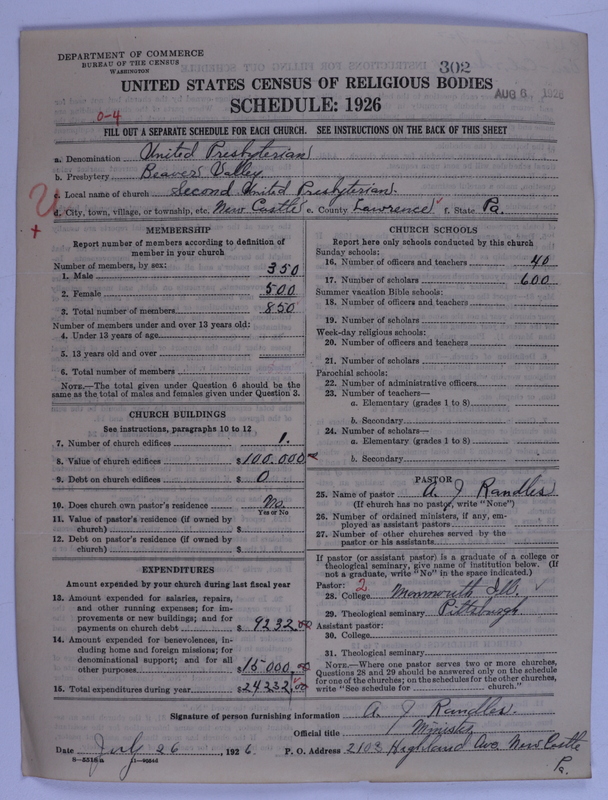 DEPARTMENT OF COMMERCE
BUREAU OF THE CENSUS
WASHINGTON
302
UNITED STATES CENSUS OF RELIGIOUS BODIES
AUG 6, 1926
SCHEDULE: 1926
0-4
FILL OUT A SEPARATE SCHEDULE FOR EACH CHURCH. SEE INSTRUCTIONS ON THE BACK OF THIS SHEET
a. Denomination United Presbyterian
b. Presbytery Beaver Valley
c. Local name of church Second United Presbyterian.
d. City, town, village, or township, etc. New Castle e. County Lawrence f. State Pa.
MEMBERSHIP
Report number of members according to definition of
member in your church
Number of members, by sex:
1. Male 350
2. Female 500
3. Total number of members 850
Number of members under and over 13 years old:
4. Under 13 years of age
5. 13 years old and over
6. Total number of members
NOTE.—The total given under Question 6 should be the
same as the total of males and females given under Question 3.
CHURCH BUILDINGS
See instructions, paragraphs 10 to 12
7. Number of church edifices 1.
8. Value of church edifices $100.000
9. Debt on church edifices $ 0
10. Does church own pastor's residence No.
Yes or No
11. Value of pastor's residence (if owned by
church) $
12. Debt on pastor's residence (if owned by
church) $
EXPENDITURES
Amount expended by your church during last fiscal year
13. Amount expended for salaries, repairs,
and other running expenses; for im-
provements or new buildings; and for
payments on church debt $ 9232.00
14. Amount expended for benevolences, in-
cluding home and foreign missions; for
denominational support; and for all
other purposes $15000.00
15. Total expenditures during year $24232.00
CHURCH SCHOOLS
Report here only schools conducted by this church
Sunday schools:
16. Number of officers and teachers 40
17. Number of scholars 600
Summer vacation Bible schools:
18. Number of officers and teachers
19. Number of scholars
Week-day religious schools:
20. Number of officers and teachers
21. Number of scholars
Parochial schools:
22. Number of administrative officers
23. Number of teachers—
a. Elementary (grades 1 to 8)
b. Secondary
24. Number of scholars—
a. Elementary (grades 1 to 8)
b. Secondary
PASTOR
25. Name of pastor A. J Randles
(If church has no pastor, write "None")
26. Number of ordained ministers, if any, em-
ployed as assistant pastors
27. Number of other churches served by the
pastor or his assistants
If pastor (or assistant pastor) is a graduate of a college or
theological seminary, give name of institution below. (If
not a graduate, write "No" in the space indicated.)
Pastor: 2
28. College Monmouth Ill.
29. Theological seminary Pittsburgh
Assistant pastor:
30. College
31. Theological seminary
NOTE.—Where one pastor serves two or more churches,
Questions 28 and 29 should be answered only on the schedule
for one of the churches; on the schedules for the other churches,
write "See schedule for church."
Signature of person furnishing information A. J Randles.
Official title Minister
Date July 26, 1926 P. O. Address 2103 Highland Ave. New Castle
Pa.